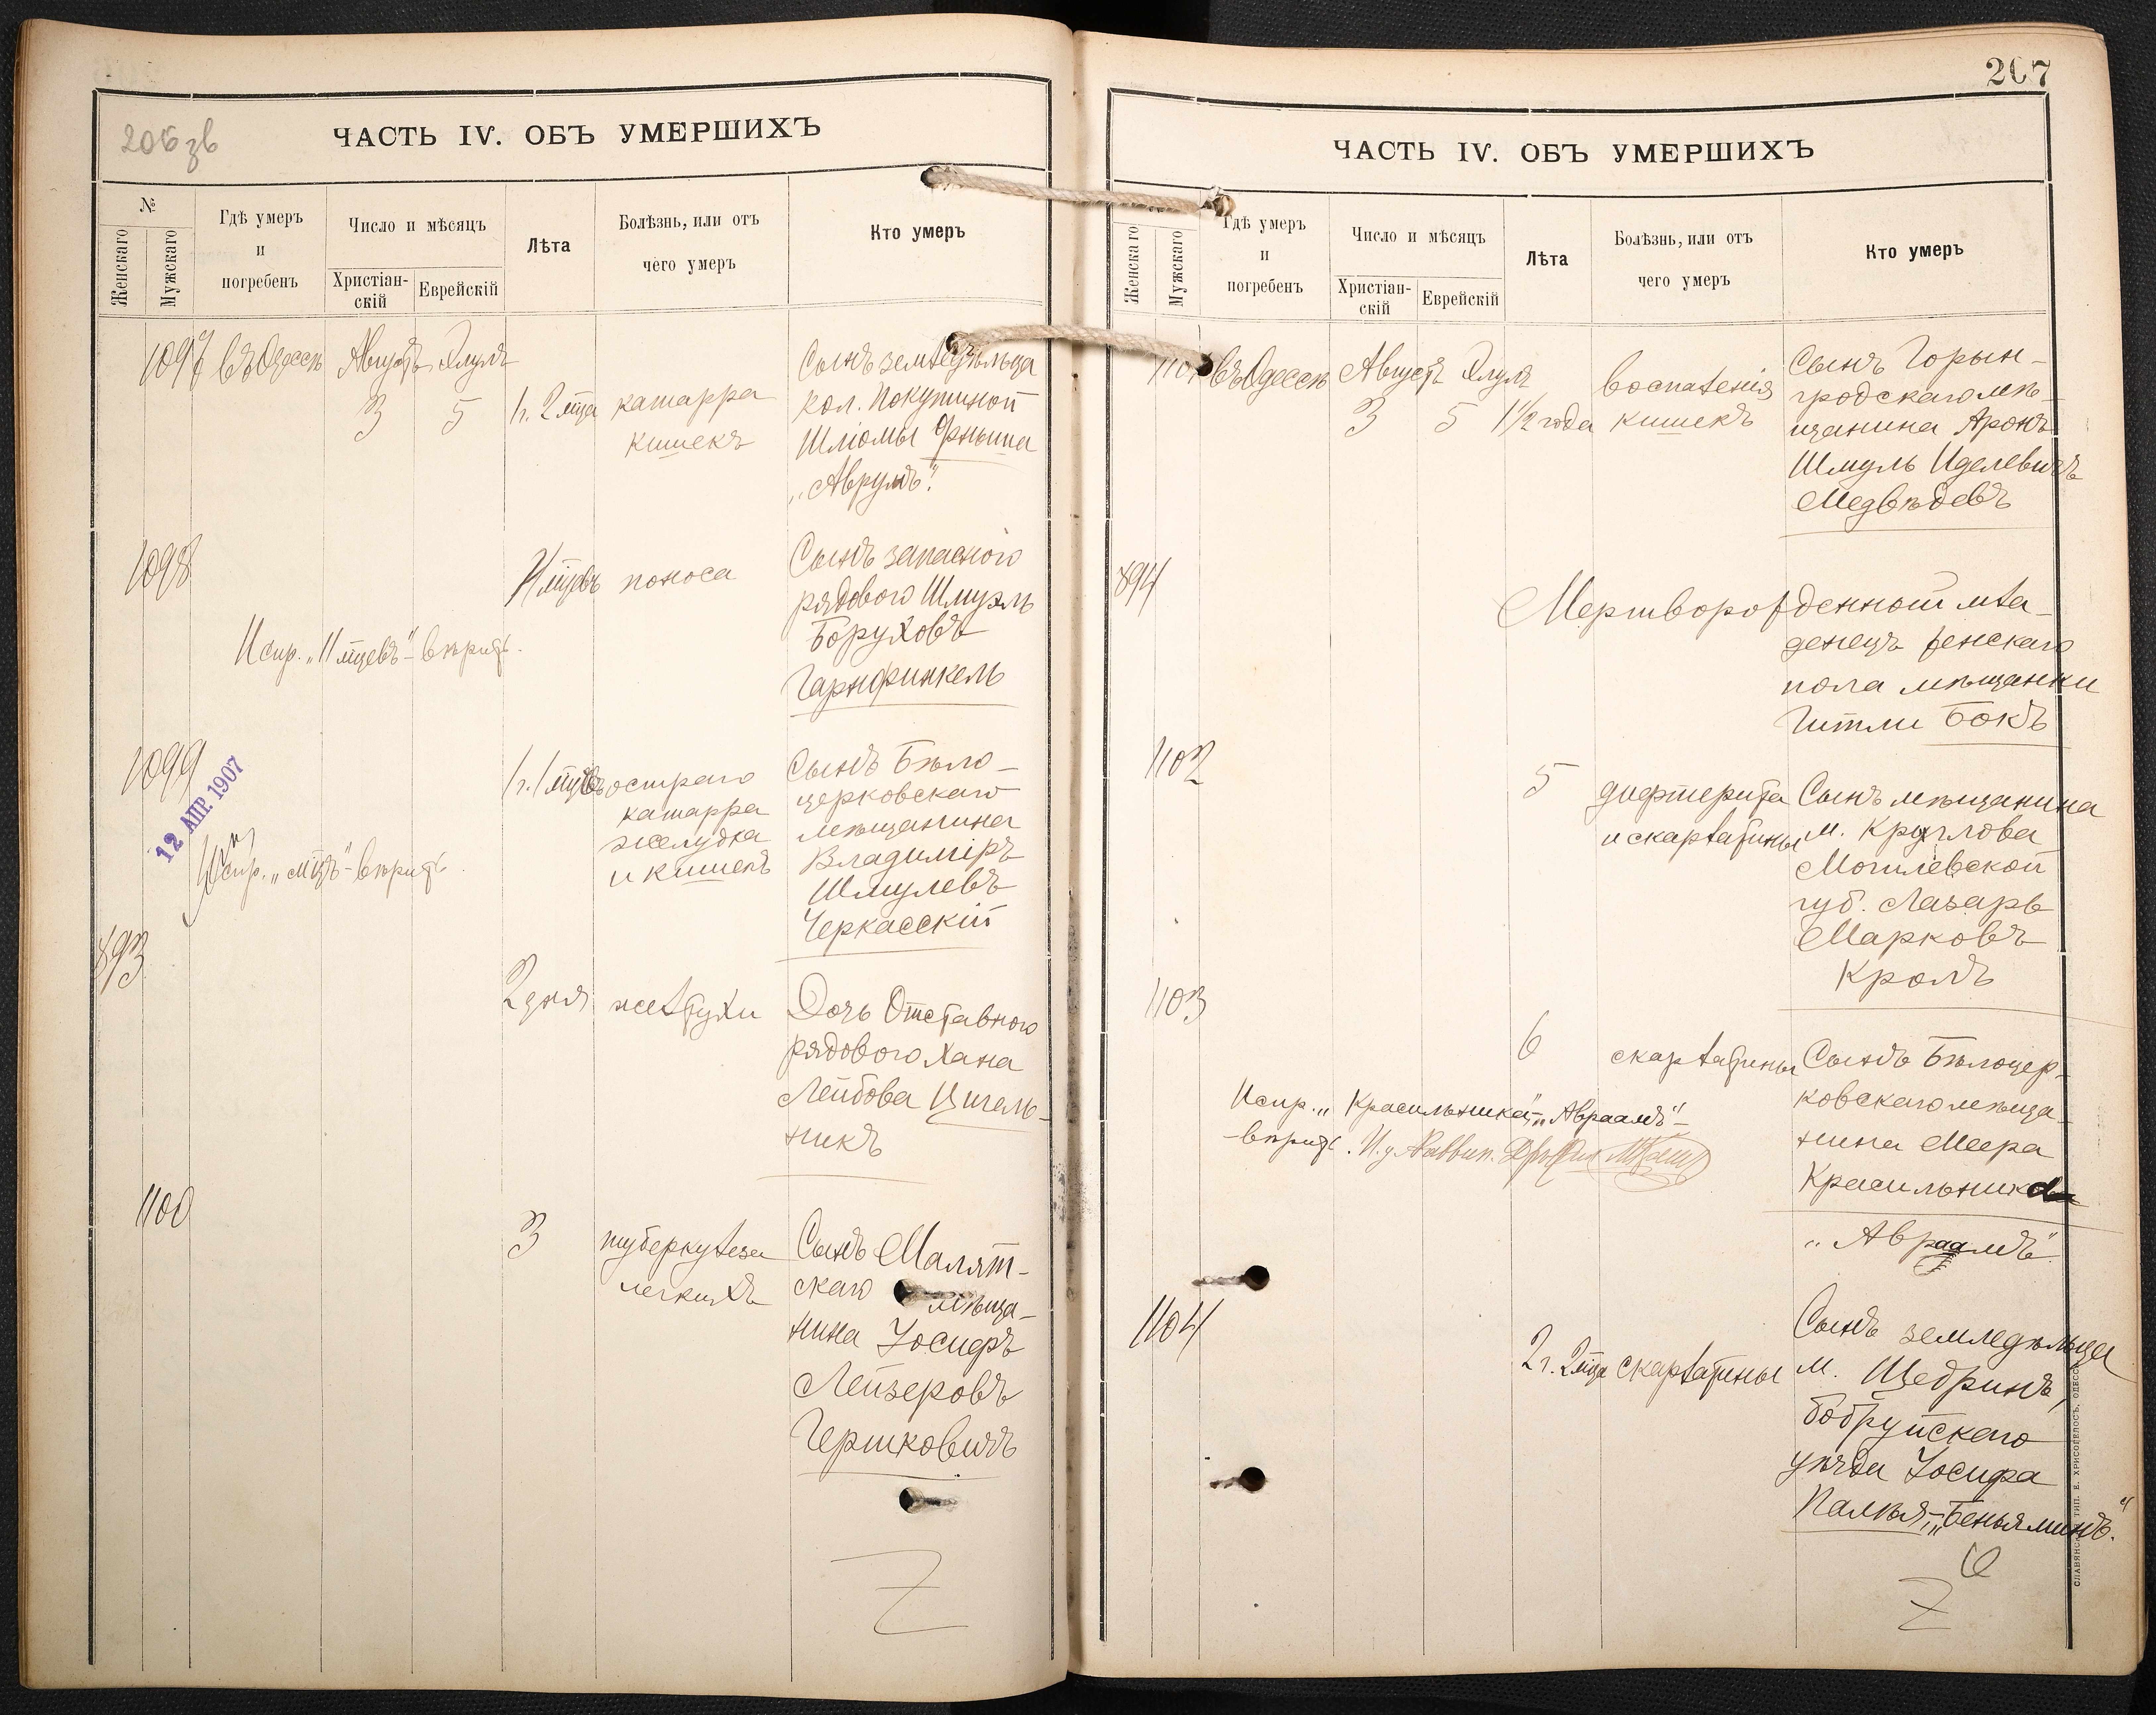 206 зв
ЧАСТЬ IV. ОБЪ УМЕРШИХЪ
№
Женскаго
Мужскаго
Гдѣ умеръ
и
погребенъ
Число и мѣсяцъ
Христіан-
скій
Еврейскій
Лѣта
Болѣзнь, или отъ
чего умеръ
Кто умеръ
1097 въ Одессѣ Августъ Элулъ
3 5 1 г. 2 мца
катарра
кишекъ
Сынъ земледѣльца
кол.
Шліомы
„Аврумъ“.
1098
11 мцевъ поноса
Сынъ запаснаго
рядового Шмуэль
Боруховъ
Гарнфинкель
Испр. „11 мцевъ“ - вѣрить.
1099
12 АПР. 1907
1 г. 1 мцъ
остраго
катарра
желудка
и кишекъ
Сынъ Бѣло-
церковскаго
мѣщанина
Владиміръ
Шмулевъ
Черкасскій
Испр. „мцъ“ - вѣрить.
893
2 дня желтухи
Дочь Отставного
рядового Хана
Лейбова Цигель-
никъ
1100
3 туберкулеза
легкихъ
Сынъ Малят-
скаго мѣща-
нина Іосифъ
Лейзеровъ
Гершковичъ
207
ЧАСТЬ IV. ОБЪ УМЕРШИХЪ
Женскаго
Мужскаго
Гдѣ умеръ
и
погребенъ
Число и мѣсяцъ
Христіан-
скій
Еврейскій
Лѣта
Болѣзнь, или отъ
чего умеръ
Кто умеръ
1101 въ Одессѣ Августъ Элулъ
3 5 1 1/2 года
воспаленія
кишекъ
Сынъ Горын-
гродскаго мѣ-
щанина Аронъ
Шмуль Иделевичъ
Медвѣдевъ
894
Мертворожденной мла-
денецъ женскаго
пола мѣщанки
Гитли Бокъ
1102
5 дифтерита
и скарлатины
Сынъ мѣщанина
м. Круглова
Могилевской
губ. Лазарь
Марковъ
Кролъ
1103
6 скарлатины
Сынъ Бѣлоцер-
ковскаго мѣща-
нина Меера
Красильника
„Авраамъ“
Испр. „Красильника“, „Авраамъ“ -
- вѣрить. И. д. Раввин.
1104
2 г. 2 мца скарлатины
Сынъ земледѣльца
м. Щедринъ,
Бобруйскаго
уѣзда Іосифа
„Беньяминъ.“
СЛАВЯНСК. ТИП. Е. ХРИСОГЕЛОСЪ, ОДЕССА